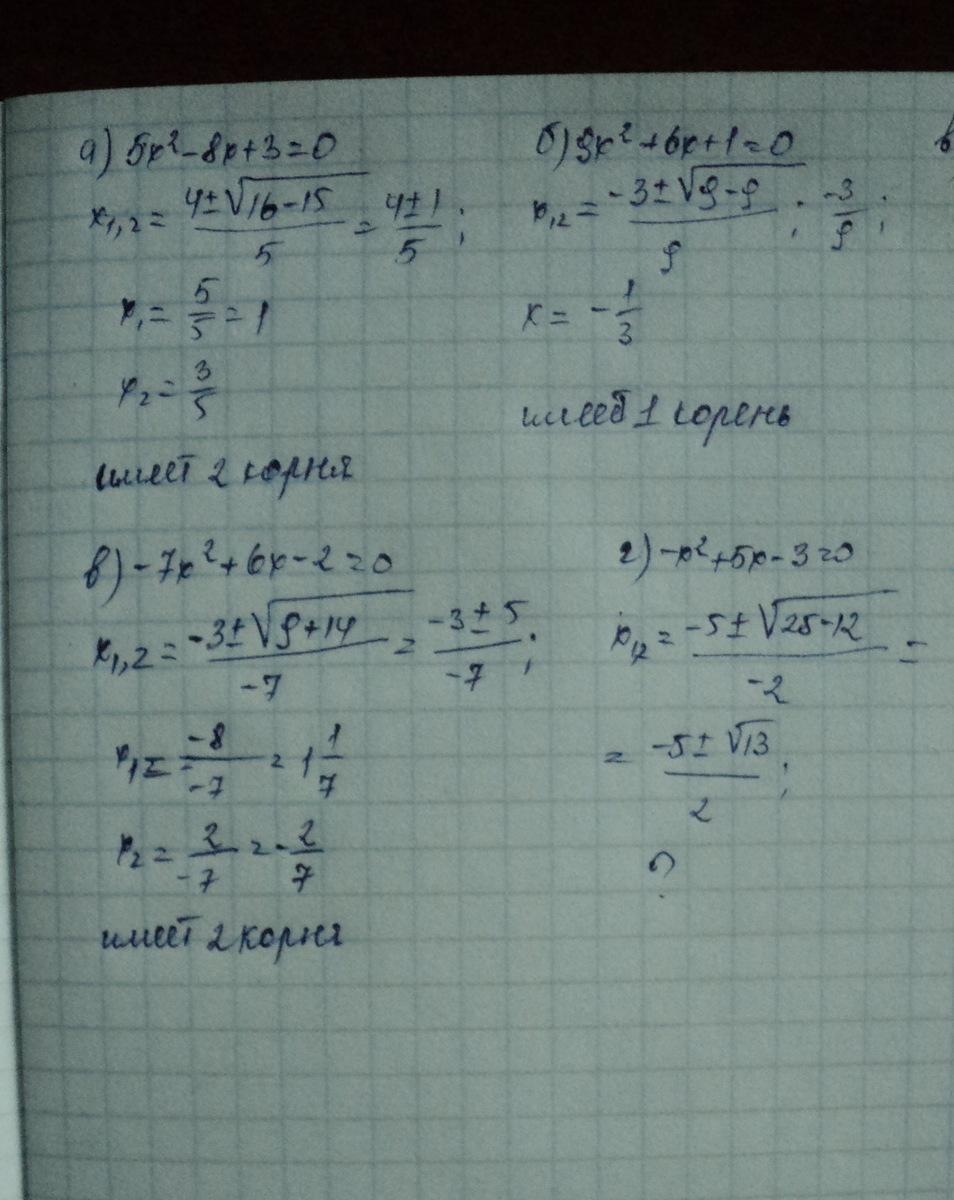 а) 5x² - 8x + 3 = 0
x₁,₂ = (4 ± √(16 - 15)) / 5 = (4 ± 1) / 5 ;
x₁ = 5/5 = 1
x₂ = 3/5
имеет 2 корня
б) 9x² + 6x + 1 = 0
x₁,₂ = (-3 ± √(9 - 9)) / 9 ; -3/9 ;
x = - 1/3
имеет 1 корень
в) -7x² + 6x - 2 = 0
x₁,₂ = (-3 ± √(9 + 14)) / -7 = (-3 ± 5) / -7 ;
x₁ = -8/-7 = 1 1/7
x₂ = 2/-7 = - 2/7
имеет 2 корня
г) -x² + 5x - 3 = 0
x₁,₂ = (-5 ± √(25 - 12)) / -2 =
= (-5 ± √13) / 2 ;
?